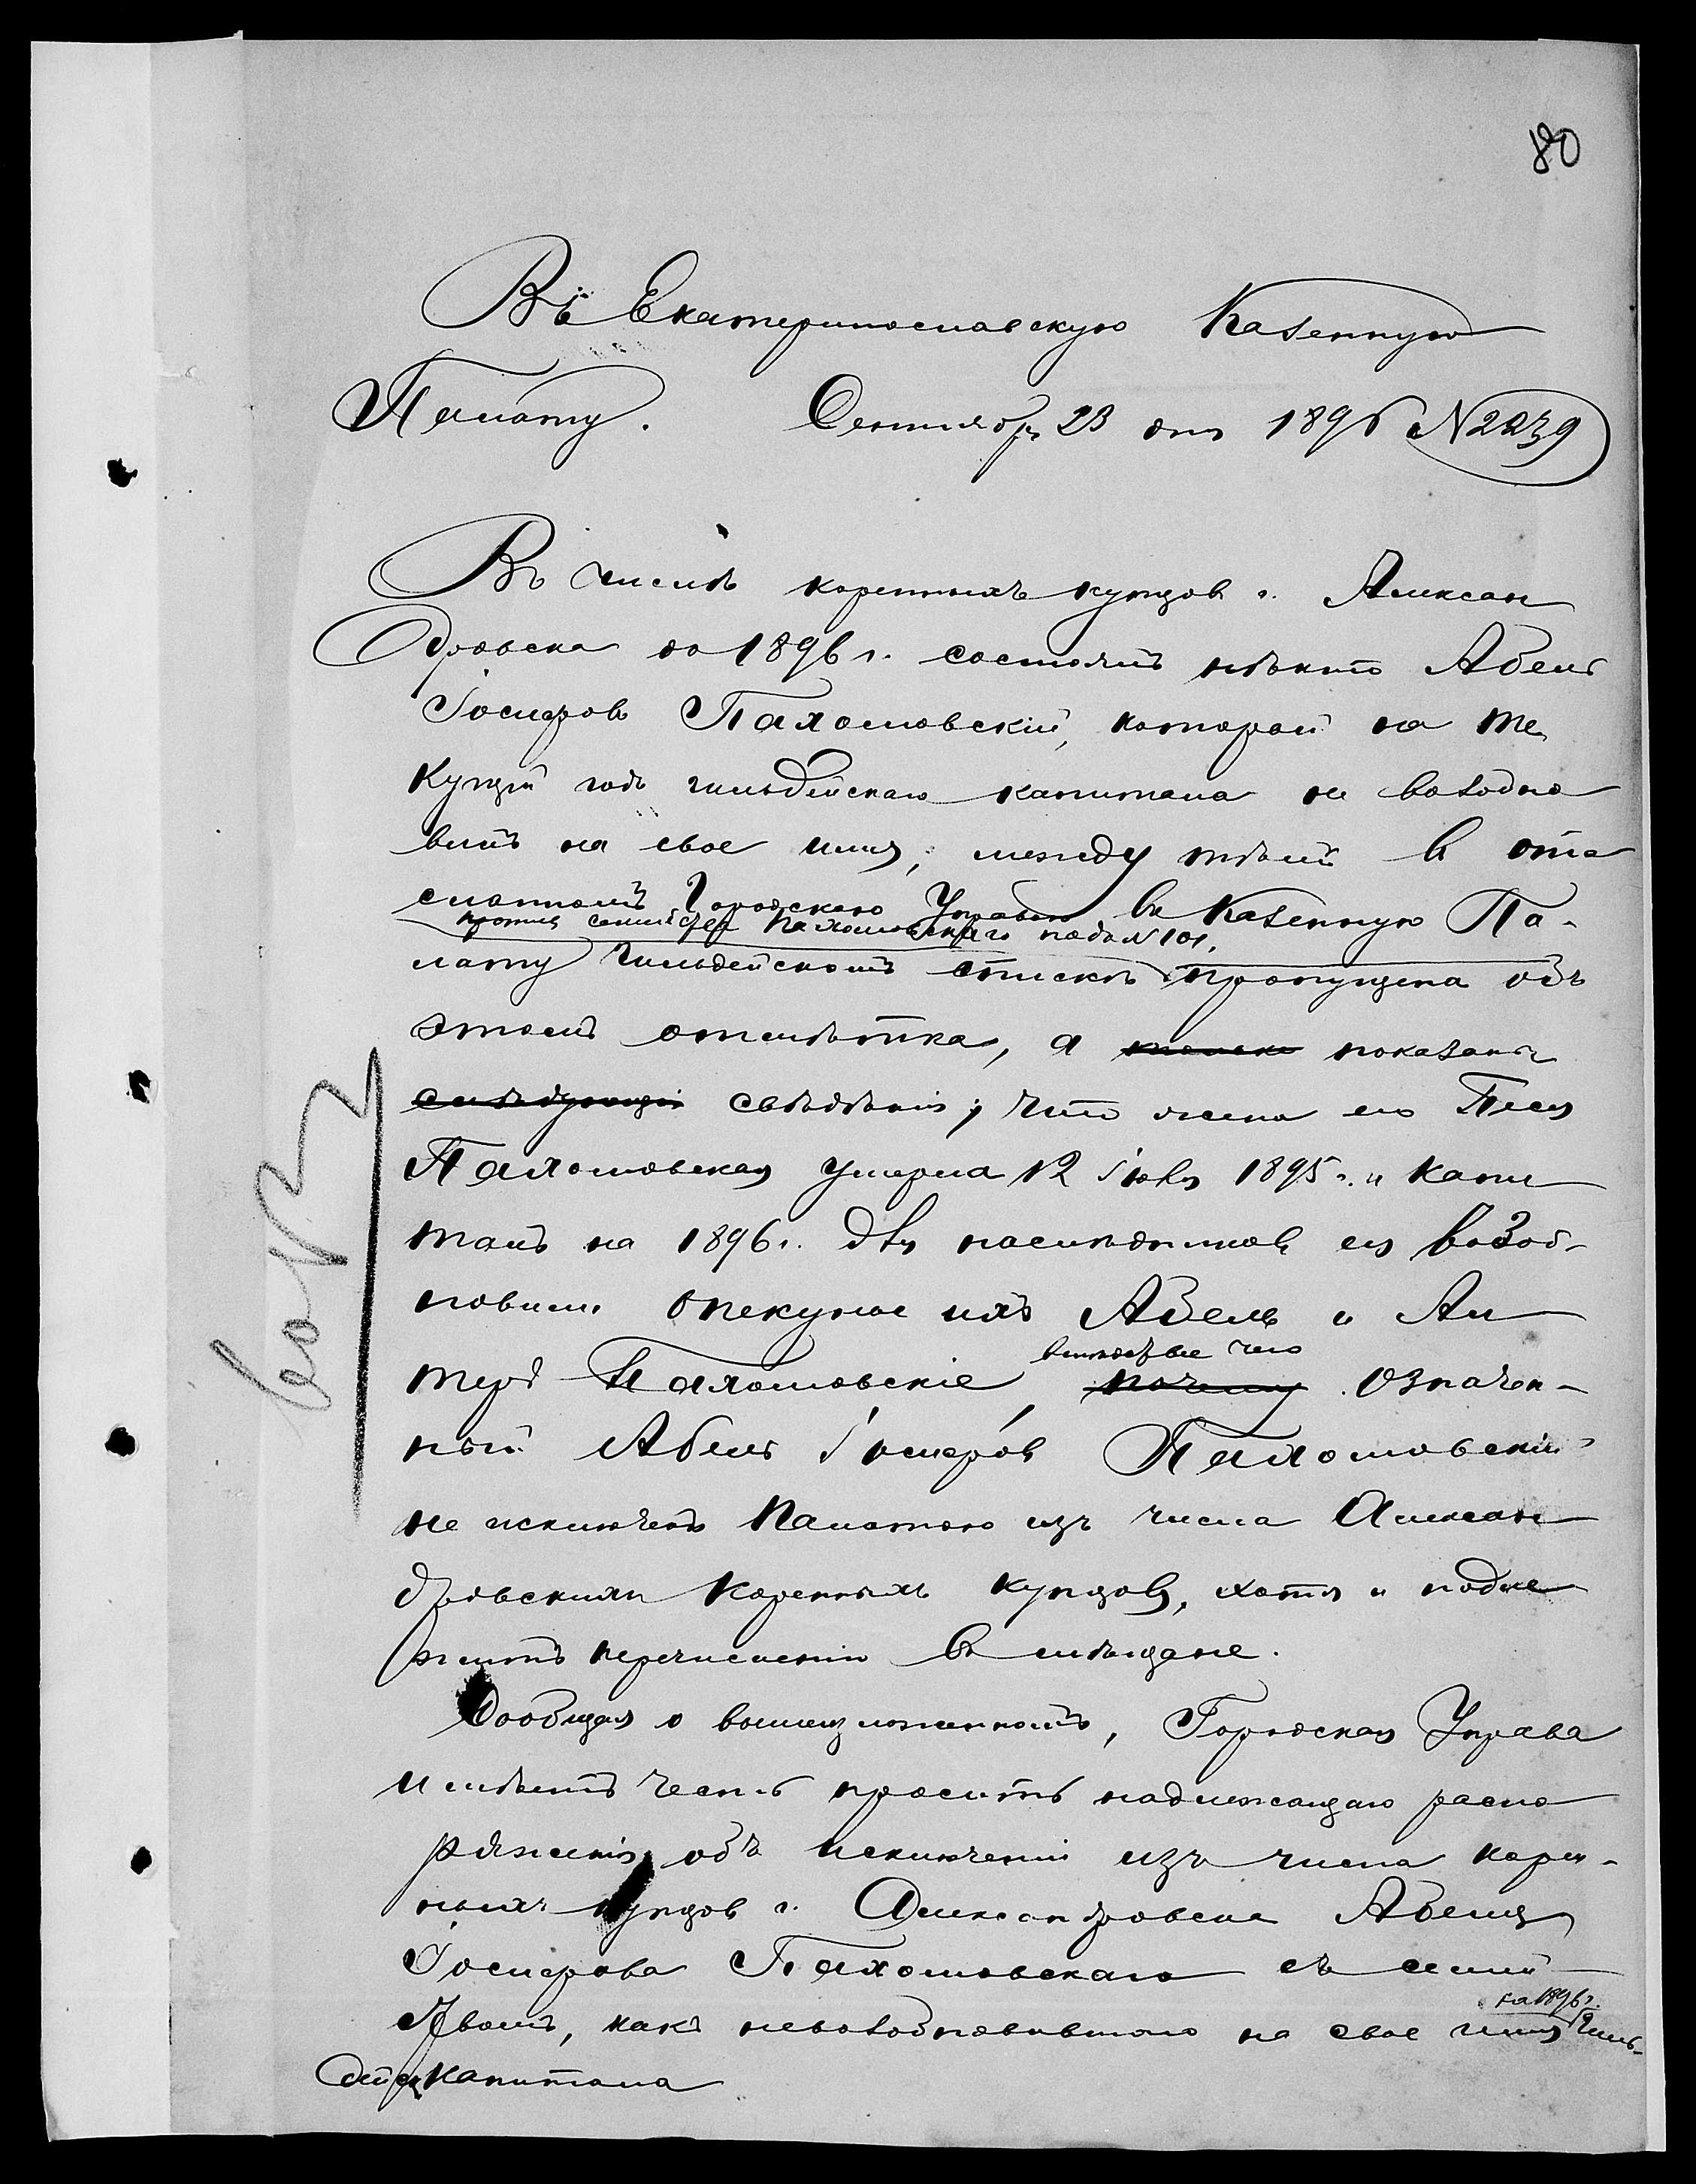 80
Въ Екатеринославскую Казенную
Палату. Сентября 23 дня 1896 N 2239
Въ числѣ коренныхъ купцов г. Александ
дровска до 1896 г. состоялъ нѣкто Абель
Іосифовъ Пахомовскій, который на те
кущій годъ гильдейскаго капитала не возобно
вилъ на свое имя, между тѣмъ въ ото
сланномъ Городскою Управою въ Казенную Па-
против семейства Пахомовскаго подъ N 101,
лату гильдейскомъ спискѣ пропущена объ
этомъ отмѣтка, а показаны
слѣдующія свѣдѣнія; что жена его Песя
Пахомовская умерла 12 Іюля 1895 г. и капи
талъ на 1896 г. для наслѣдников ея возоб-
новили опекуны ихъ Абель и
Пахомовскіе,
вслѣдствіе чего
почему означен-
ный Абель Іосифов Пахомовскій
не исключенъ Палатою изъ числа Алексан
дровскихъ коренныхъ купцовъ, хотя и подле
житъ перечисленію въ мѣщане.
Сообщая о вышеизложенномъ, Городская Управа
имѣетъ честь просить надлежащаго распо
ряженія объ исключеніи изъ числа корен-
ныхъ купцов г. Александровска Абеля
Іосифова Пахомовскаго съ семей
на 1896 г.
ствомъ, какъ невозобновившаго на свое имя гиль-
дейск капитала